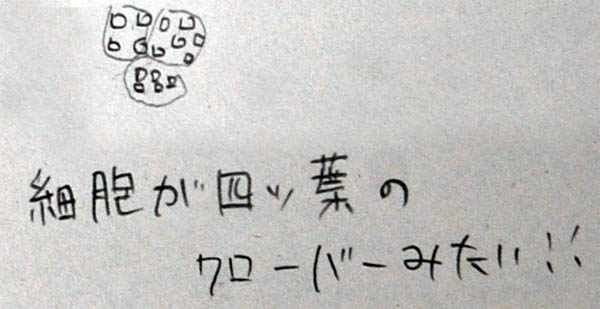 細胞が四ッ葉の
クローバーみたい!!